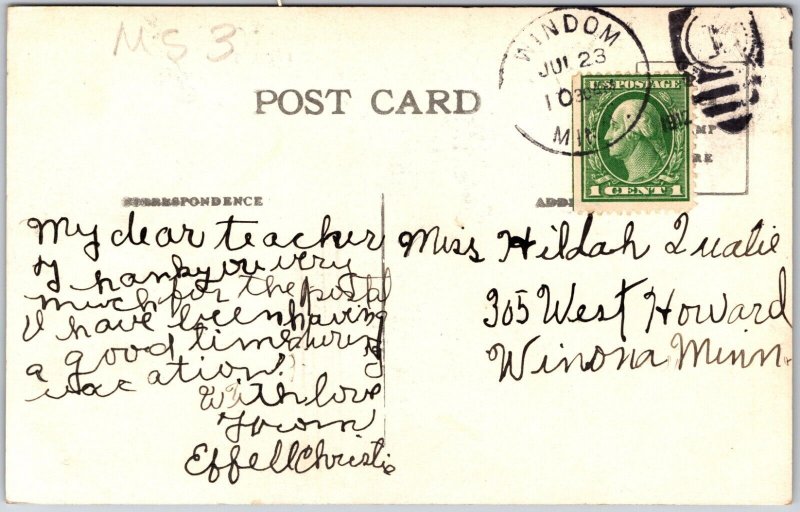 MS 3
WINDOM
JUL 23
10 30 AM
MIN
1912
POST CARD
U.S. POSTAGE
1 CENT 1
CORRESPONDENCE
ADD
My dear teacher
I thank you very
much for the postal
I have been having
a good time during
vacation.
With love
From
Effell Christie
Miss Hildah Qualie
305 West Howard
Winona Minn.